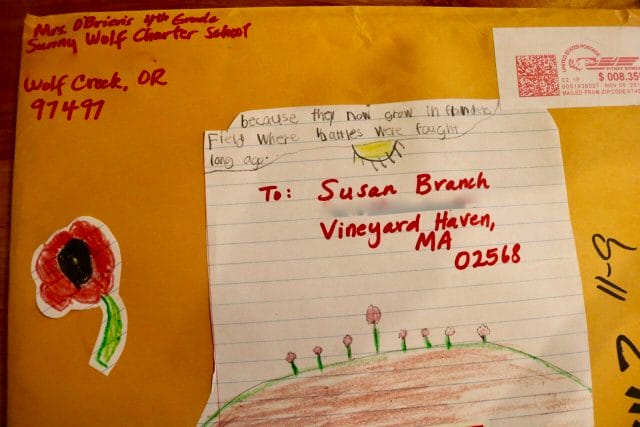 Mrs O'Brien's 4th Grade
Sunny Wolf Charter School
Wolf Creek, OR
97497
UNITED STATES POSTAGE
PITNEY BOWES
02 1P
$ 008.35
MAILED FROM ZIP CODE
because they now grow in Flanders
Field Where battles were fought
long ago.
To: Susan Branch
Vineyard Haven,
MA
02568
11-9